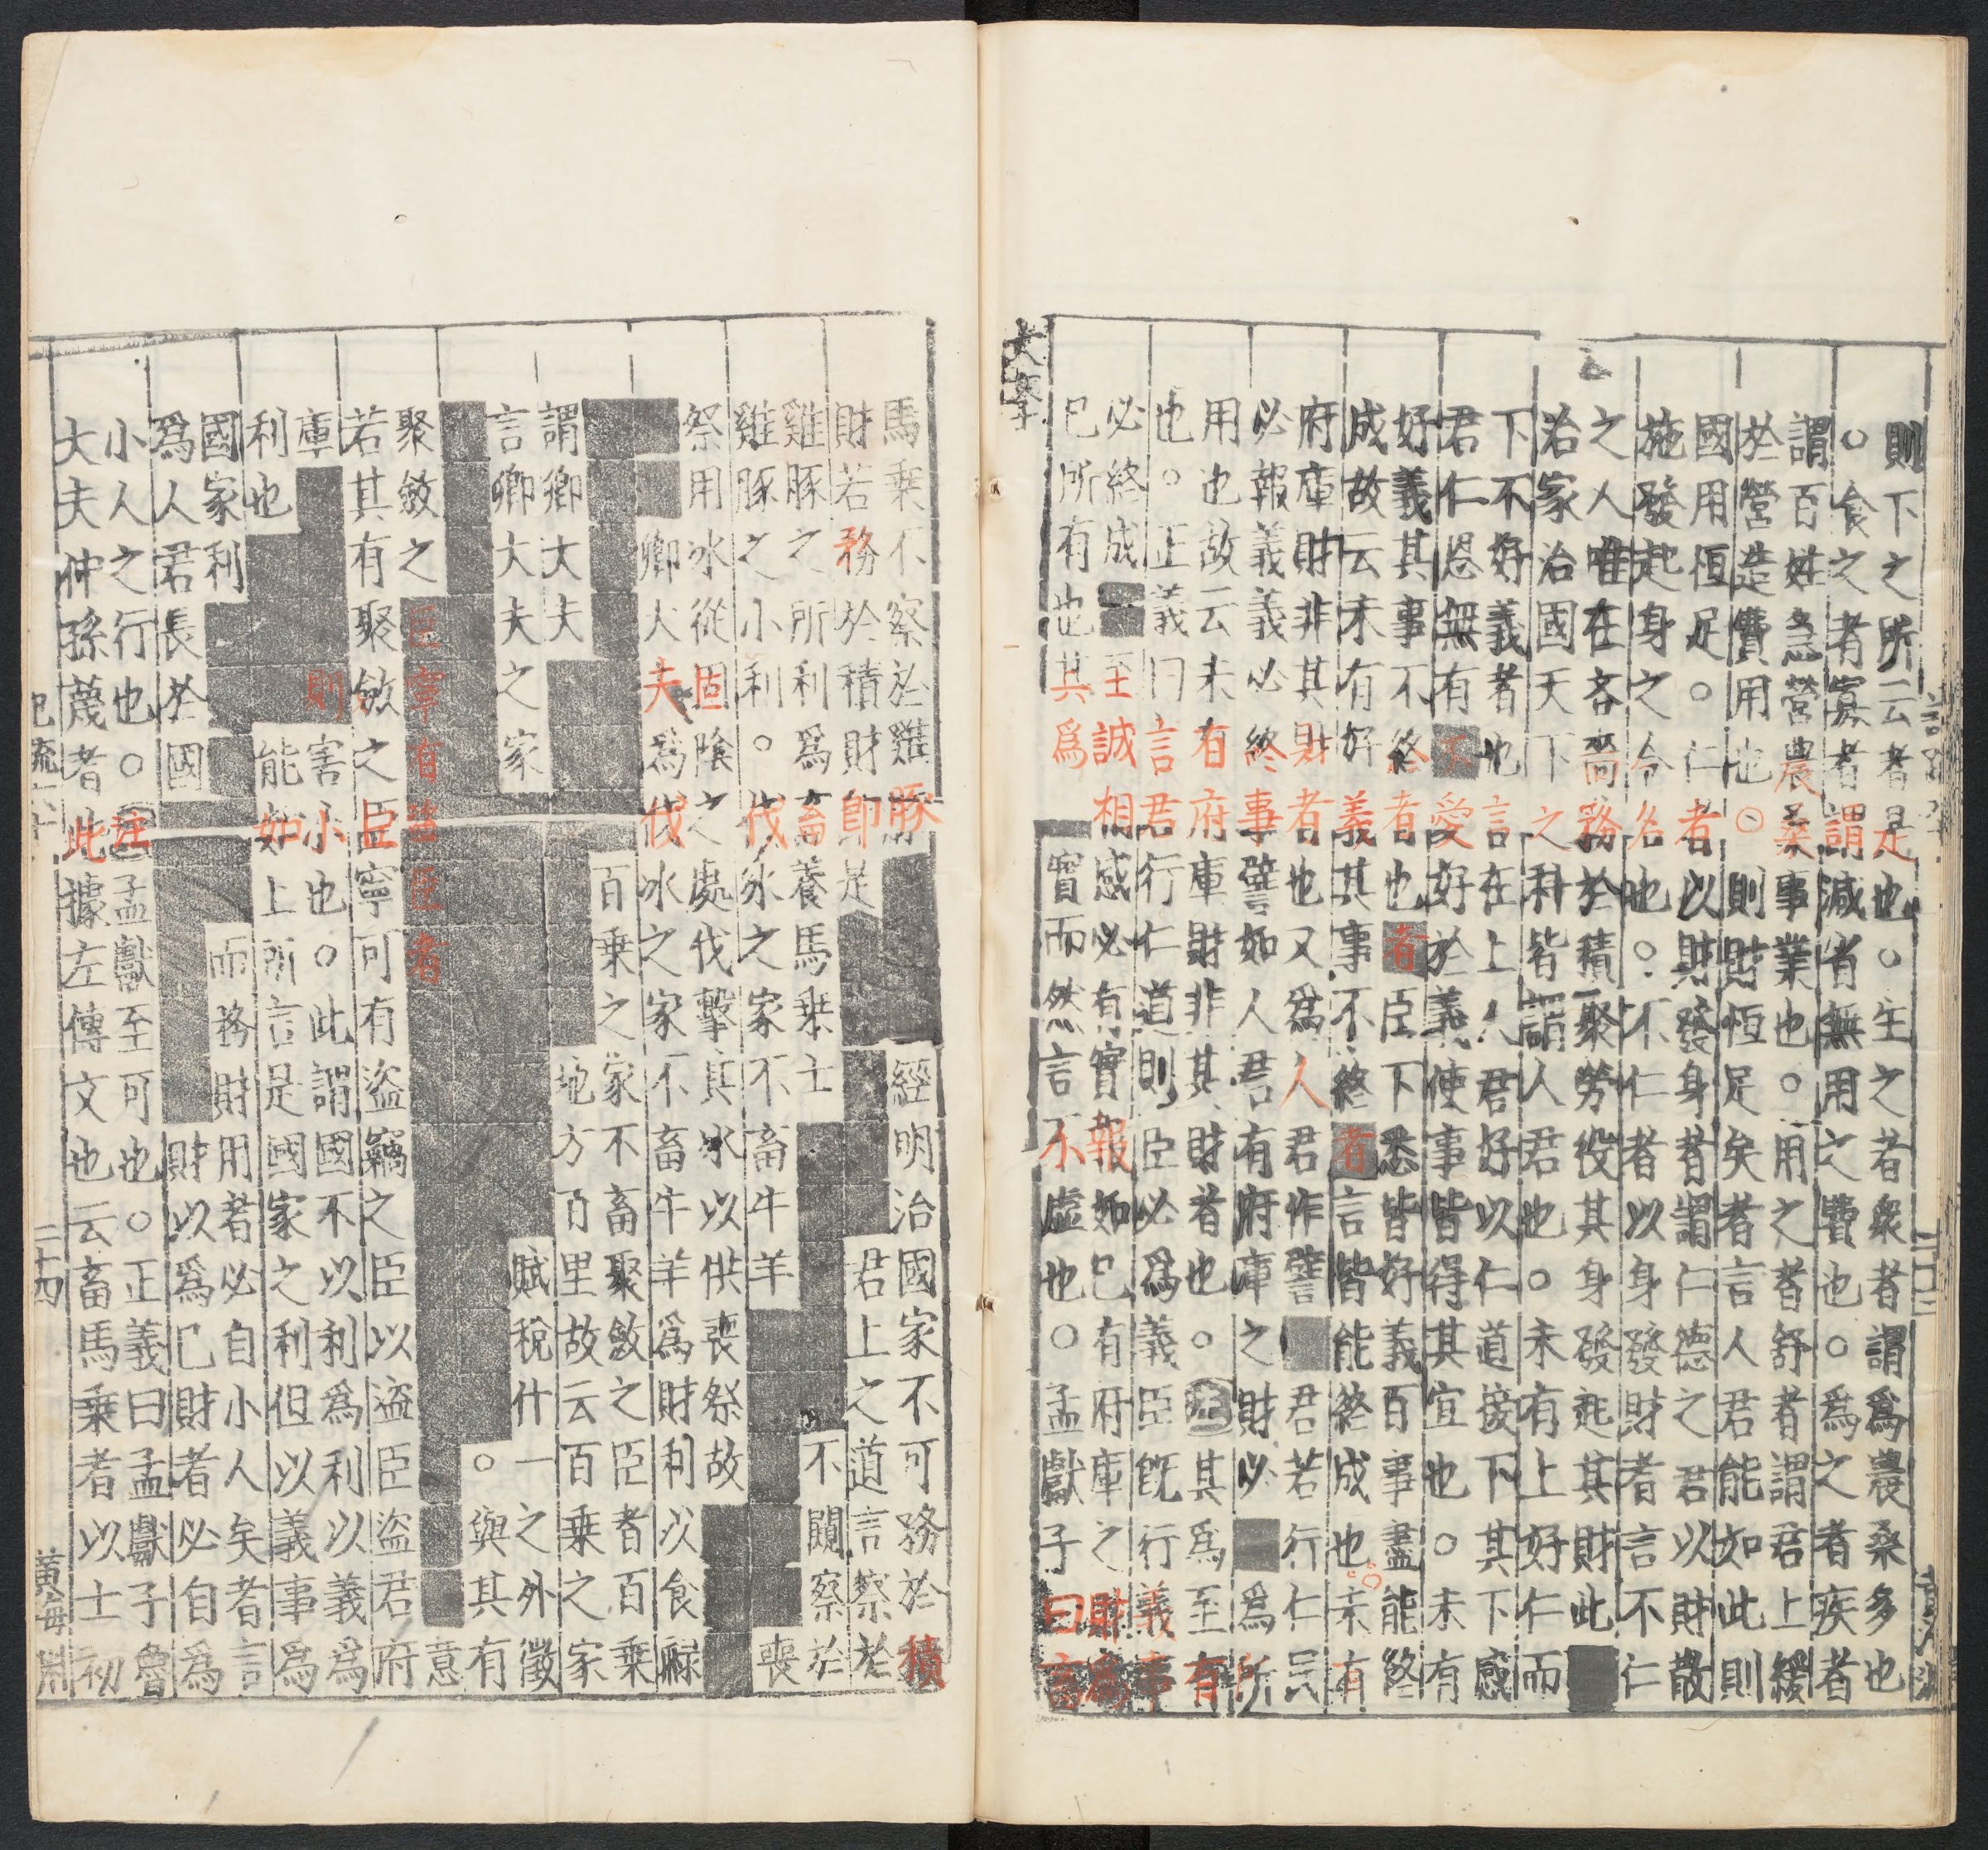 則下之所云者是也。生之者衆者謂爲農桑多也
。食之者寡者謂減省無用之費也。爲之者疾者
謂百姓急營農桑事業也。用之者舒者謂君上緩
於營造費用也。則財恒足矣者言人君能如此則
國用恒足。仁者以財發身者謂仁德之君以財散
施發起身之令名也。不仁者以身發財者言不仁
之人唯在吝嗇務於積聚勞役其身發起其財此
治家治國天下之科皆謂人君也。未有上好仁而
下不好義者也言在上人君好以仁道接下其下感
君仁恩無有不愛好於義使事皆得其宜也。未有
好義其事不終者也者臣下悉皆好義百事盡能終
成故云未有好義其事不終者言皆能終成也。未有
府庫財非其財者也又爲人君作譬君若行仁民
必報義義必終事譬如人君有府庫之財必爲所
用也故云未有府庫財非其財者也。注其爲至有
也。正義曰言君行仁道則臣必爲義臣旣行義事
必終成至誠相感必有實報如己有府庫之財爲
己所有也其爲實而然言不虛也。孟獻子曰畜
大學
馬乗不察於雞豚經明治國家不可務於積
財若務於積財即是君上之道言察於
雞豚之所利爲畜養馬乗士不闚察於
雞豚之小利。伐冰之家不畜牛羊喪
祭用冰從固陰之處伐擊其冰以供喪祭故
卿大夫爲伐冰之家不畜牛羊爲財利以食祿
百乗之家不畜聚斂之臣者百乗
謂卿大夫地方百里故云百乗之家
言卿大夫之家賦稅什一之外徵
。與其有
意
聚斂之臣寧有盗臣者
若其有聚斂之臣寧可有盗竊之臣以盗臣盗君府
庫則害小也。此謂國不以利爲利以義爲
利也能如上所言是國家之利但以義事爲
國家利而務財用者必自小人矣者言
爲人君長於國財以爲己財者必自爲
小人之行也。注孟獻至可也。正義曰孟獻子魯
大夫仲孫蔑者此據左傳文也云畜馬乗者以士初
二十四
黃海淵